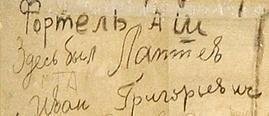 Фортель А Ш
Здесь был Лаптев
Иван Григорьевич